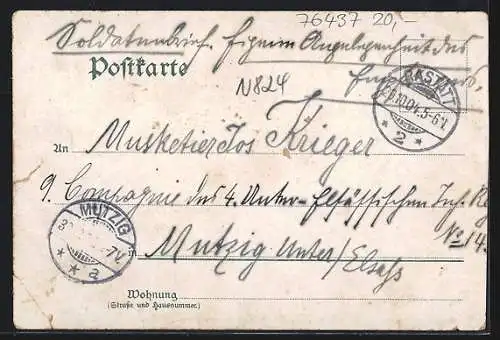 76437 20,-
Soldatenbrief. Eigene Angelegenheit des
Postkarte
N824
RASTATT
10.04.5-6V.
* 2 *
An Musketier Jos Krieger
9. Compagnie des 4. Unter-Elsässischen Inf. Reg
No 14
MUTZIG
7V.
* * a
in Mutzig Unter/Elsass
Wohnung
(Straße und Hausnummer)